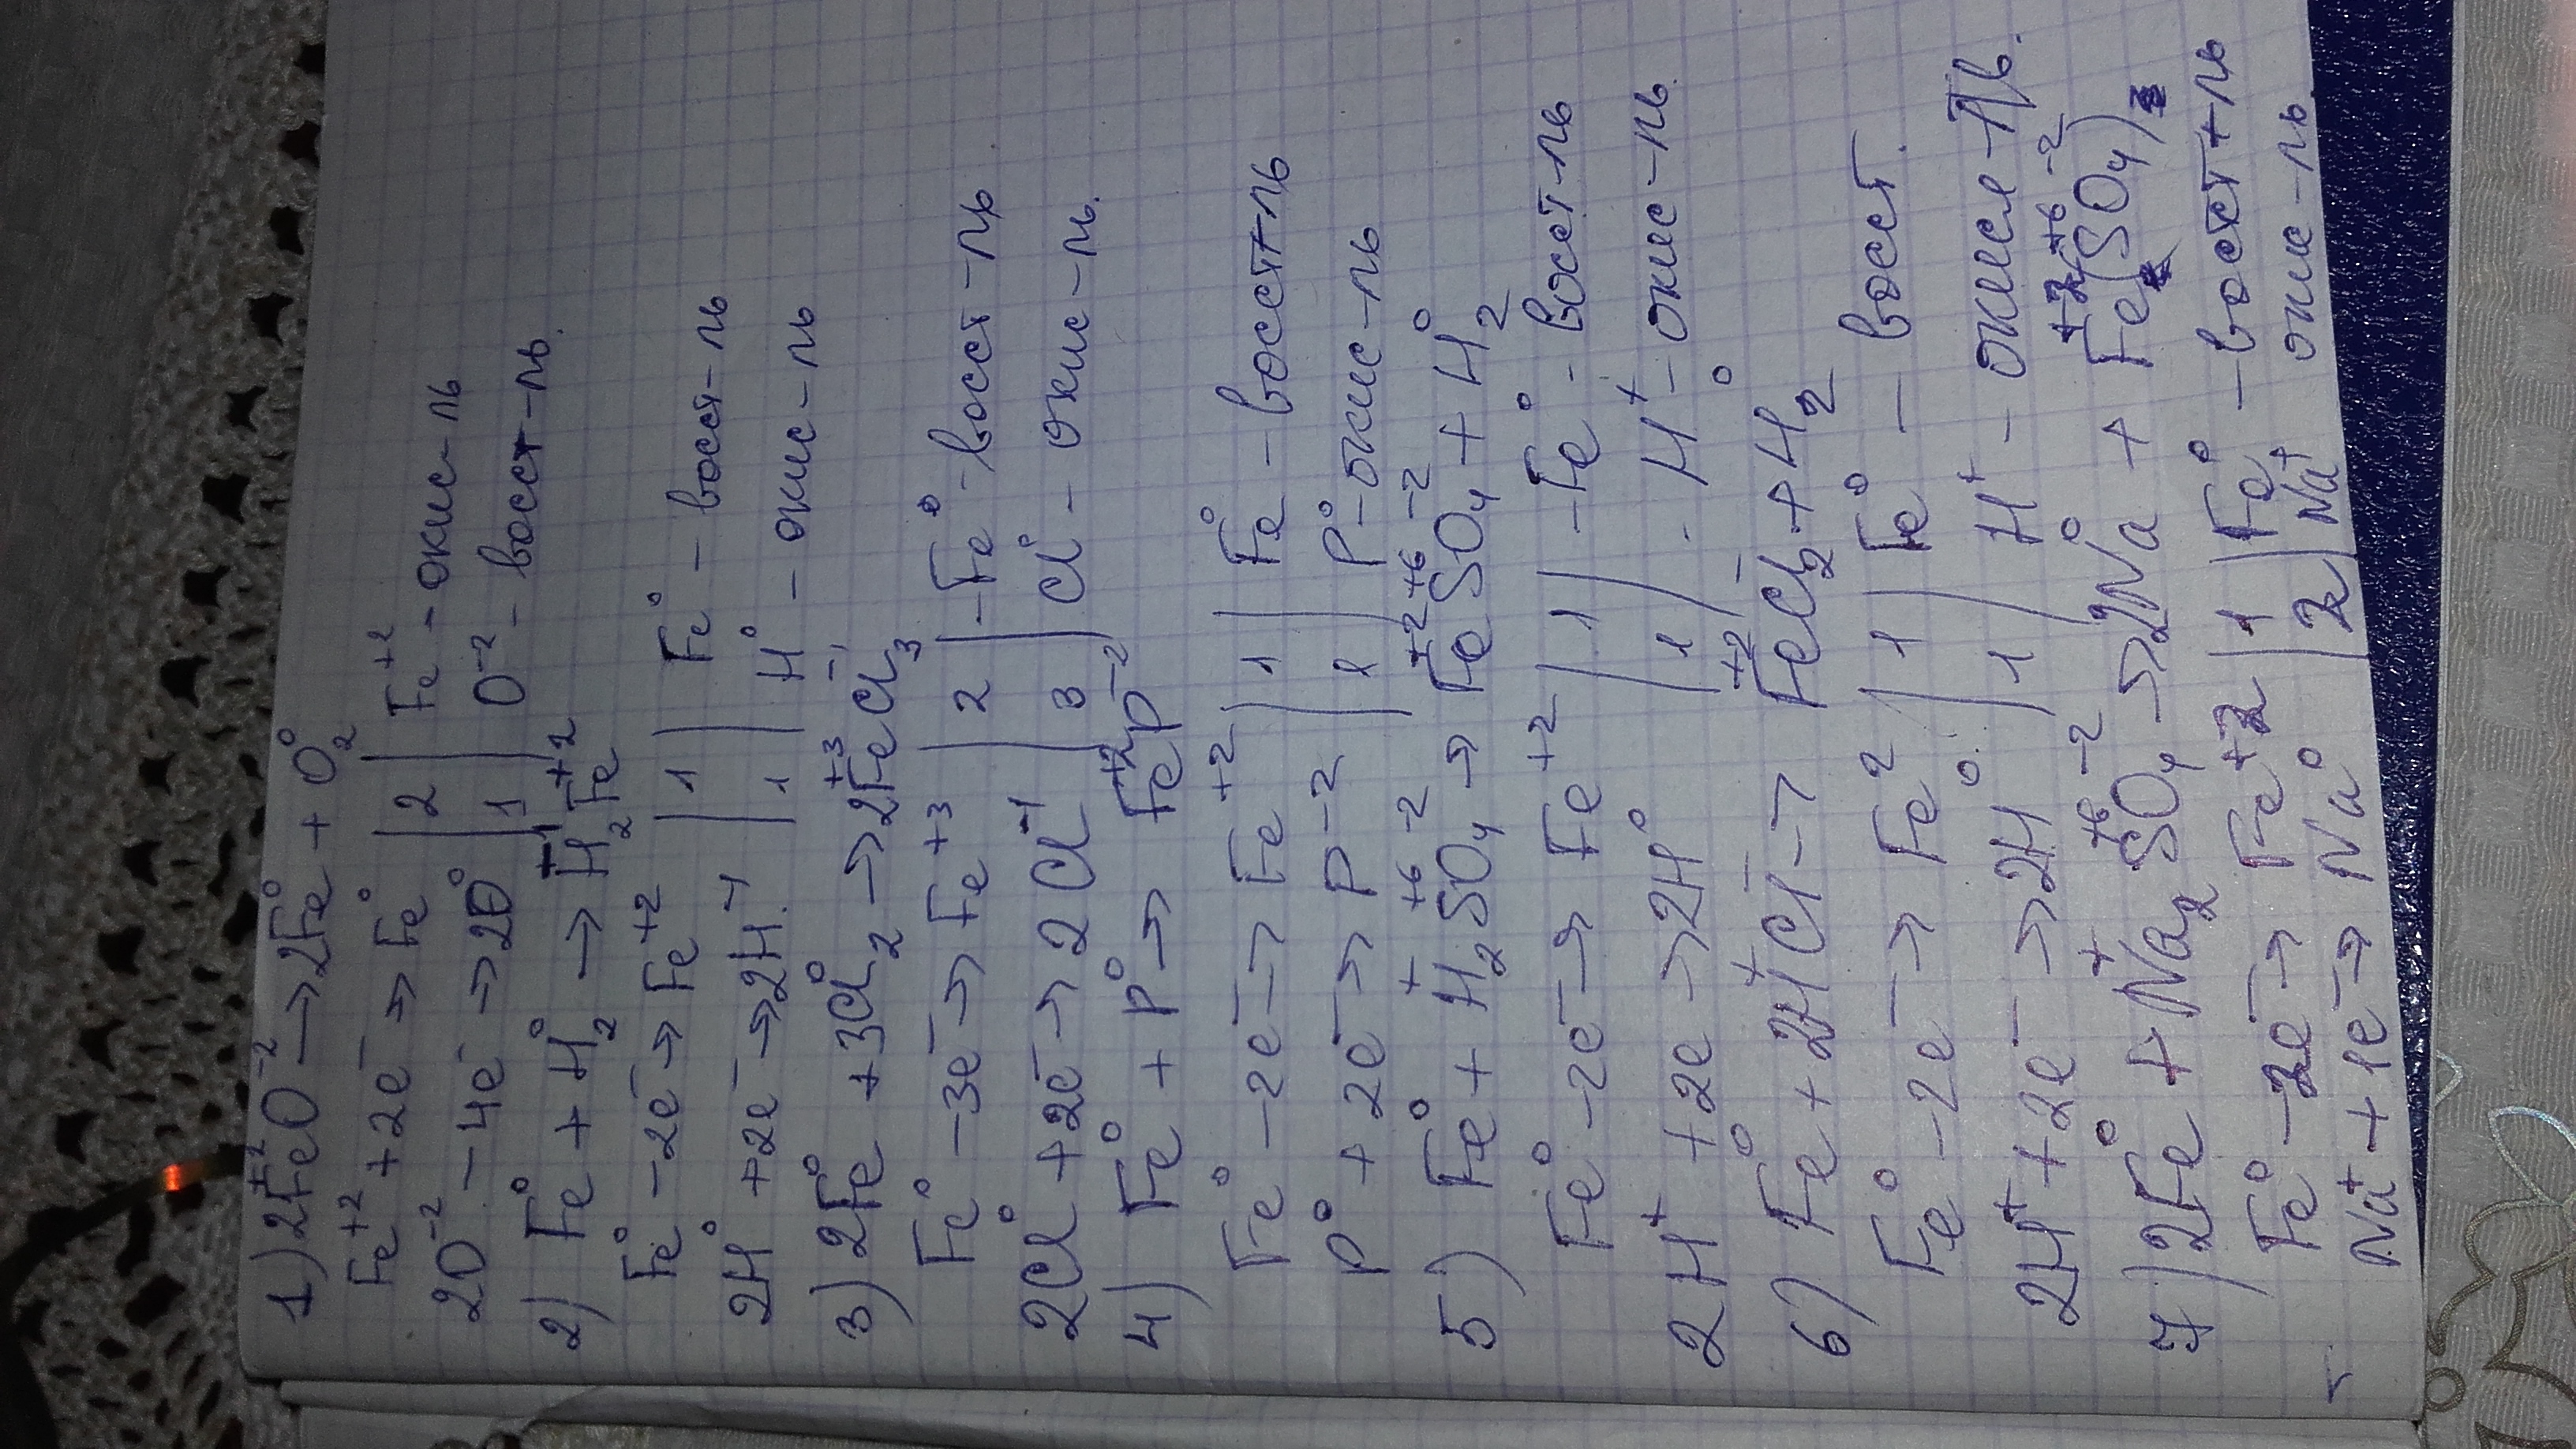 1) 2Fe⁺²O⁻² → 2Fe⁰ + O₂⁰
Fe⁺² + 2e⁻ → Fe⁰ | 2 | Fe⁺² - окис-ль
2O⁻² - 4e⁻ → 2O⁰ | 1 | O⁻² - восст-ль.
2) Fe⁰ + H₂⁰ → H₂⁺¹Fe⁺²
Fe⁰ - 2e⁻ → Fe⁺² | 1 | Fe⁰ - восст-ль
2H⁰ + 2e⁻ → 2H⁻¹ | 1 | H⁰ - окис-ль
3) 2Fe⁰ + 3Cl₂⁰ → 2Fe⁺³Cl₃⁻¹
Fe⁰ - 3e⁻ → Fe⁺³ | 2 | - Fe⁰ - восст-ль
2Cl⁰ + 2e⁻ → 2Cl⁻¹ | 3 | Cl⁰ - окис-ль.
4) Fe⁰ + P⁰ → Fe⁺²P⁻²
Fe⁰ - 2e⁻ → Fe⁺² | 1 | Fe⁰ - восст-ль
P⁰ + 2e⁻ → P⁻² | 1 | P⁰ - окис-ль
5) Fe⁰ + H₂⁺S⁺⁶O₄⁻² → Fe⁺²S⁺⁶O₄⁻² + H₂⁰
Fe⁰ - 2e⁻ → Fe⁺² | 1 | - Fe⁰ - восст-ль
2H⁺ + 2e → 2H⁰ | 1 | - H⁺ - окис-ль.
6) Fe⁰ + 2H⁺Cl⁻ → Fe⁺²Cl₂⁻ + H₂⁰
Fe⁰ - 2e⁻ → Fe² | 1 | Fe⁰ - восст.
2H⁺ + 2e⁻ → 2H⁰ | 1 | H⁺ - окисл-ль.
7) 2Fe⁰ + Na₂⁺S⁺⁶O₄⁻² → 2Na⁰ + Fe⁺²(S⁺⁶O₄⁻²)
Fe⁰ - 2e⁻ → Fe⁺² | 1 | Fe⁰ - восст-ль
Na⁺ + 1e⁻ → Na⁰ | 2 | Na⁺ окис-ль